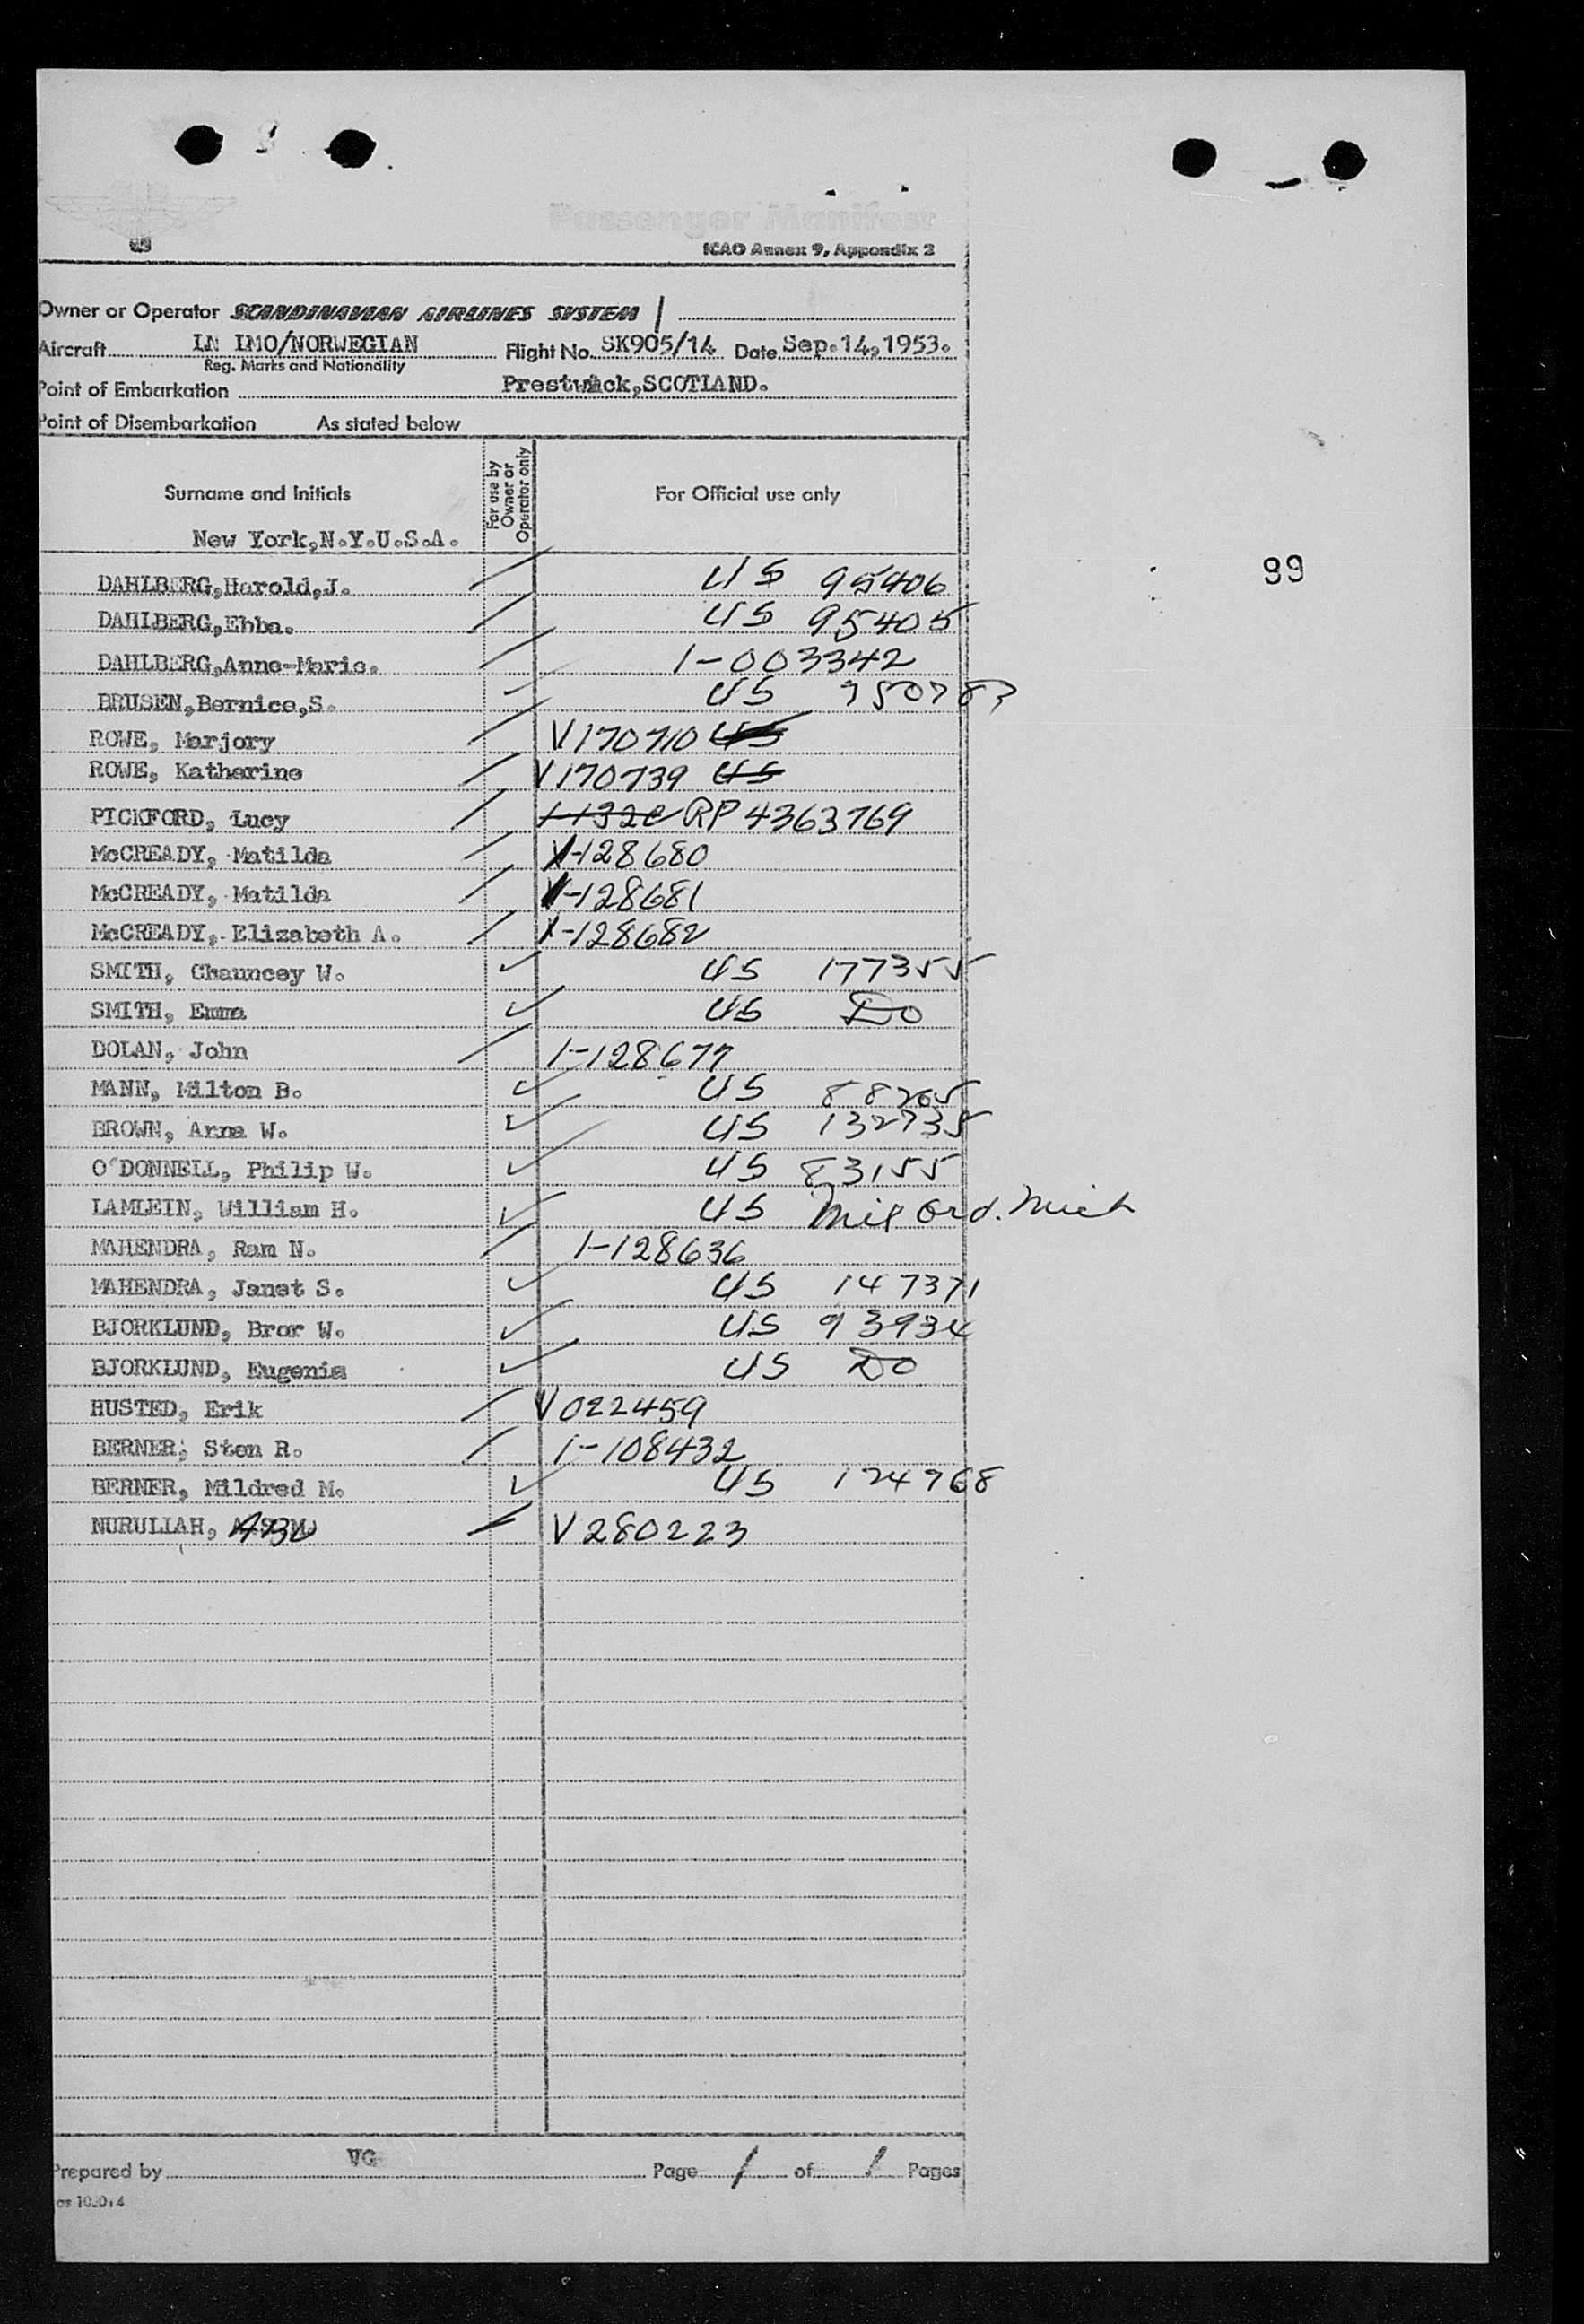 Passenger Manifest
ICAO Annex 9, Appendix 2
Owner or Operator SCANDINAVIAN AIRLINES SYSTEM
Aircraft LN LMO/NORWEGIAN Flight No. SK905/14 Date Sep.14,1953.
Reg. Marks and Nationality
Point of Embarkation Prestwick,SCOTLAND.
Point of Disembarkation As stated below
Surname and Initials For use by Owner or Operator only For Official use only
New York,N.Y.U.S.A.
99
DAHLBERG,Harold,J. US 95406
DAHLBERG,Ebba. US 95405
DAHLBERG,Anne-Marie. 1-003342
BRUSEN,Bernice,S. US
ROWE, Marjory V170710 US
ROWE, Katherine V170739 US
PICKFORD, Lucy RP 4363769
McCREADY, Matilda 1-128680
McCREADY, Matilda 1-128681
McCREADY, Elizabeth A. 1-128682
SMITH, Chauncey W. US 177355
SMITH, Emma US Do
DOLAN, John 1-128677
MANN, Milton B. US 88265
BROWN, Anna W. US 132735
O'DONNELL, Philip W. US 83155
LAMLEIN, William H. US Mil Ord. Mich
MAHENDRA, Ram N. 1-128636
MAHENDRA, Janet S. US 147371
BJORKLUND, Bror W. US 93934
BJORKLUND, Eugenia US Do
HUSTED, Erik V022459
BERNER, Sten R. 1-108432
BERNER, Mildred M. US 124768
NURULLAH, V280223
Prepared by VG Page 1 of 1 Pages